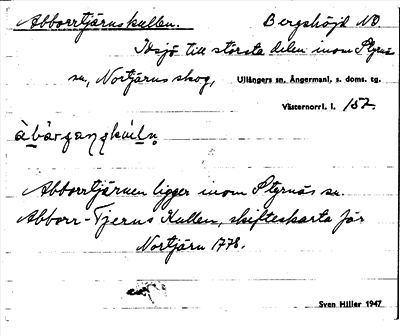 Abborrtjärnskullen. Bergshöjd NO
Idsjö till största delen inom Styrnäs
sn, Nortjärns skog, Ullångers sn, Ångermanl. s. doms. tg.
Västernorrl. l. 152
Abborrtjärnen ligger inom Styrnäs sn.
Abborr-Tjerns Kullen, skifteskarta för
Nortjärn 1778.
Sven Hiller 1947